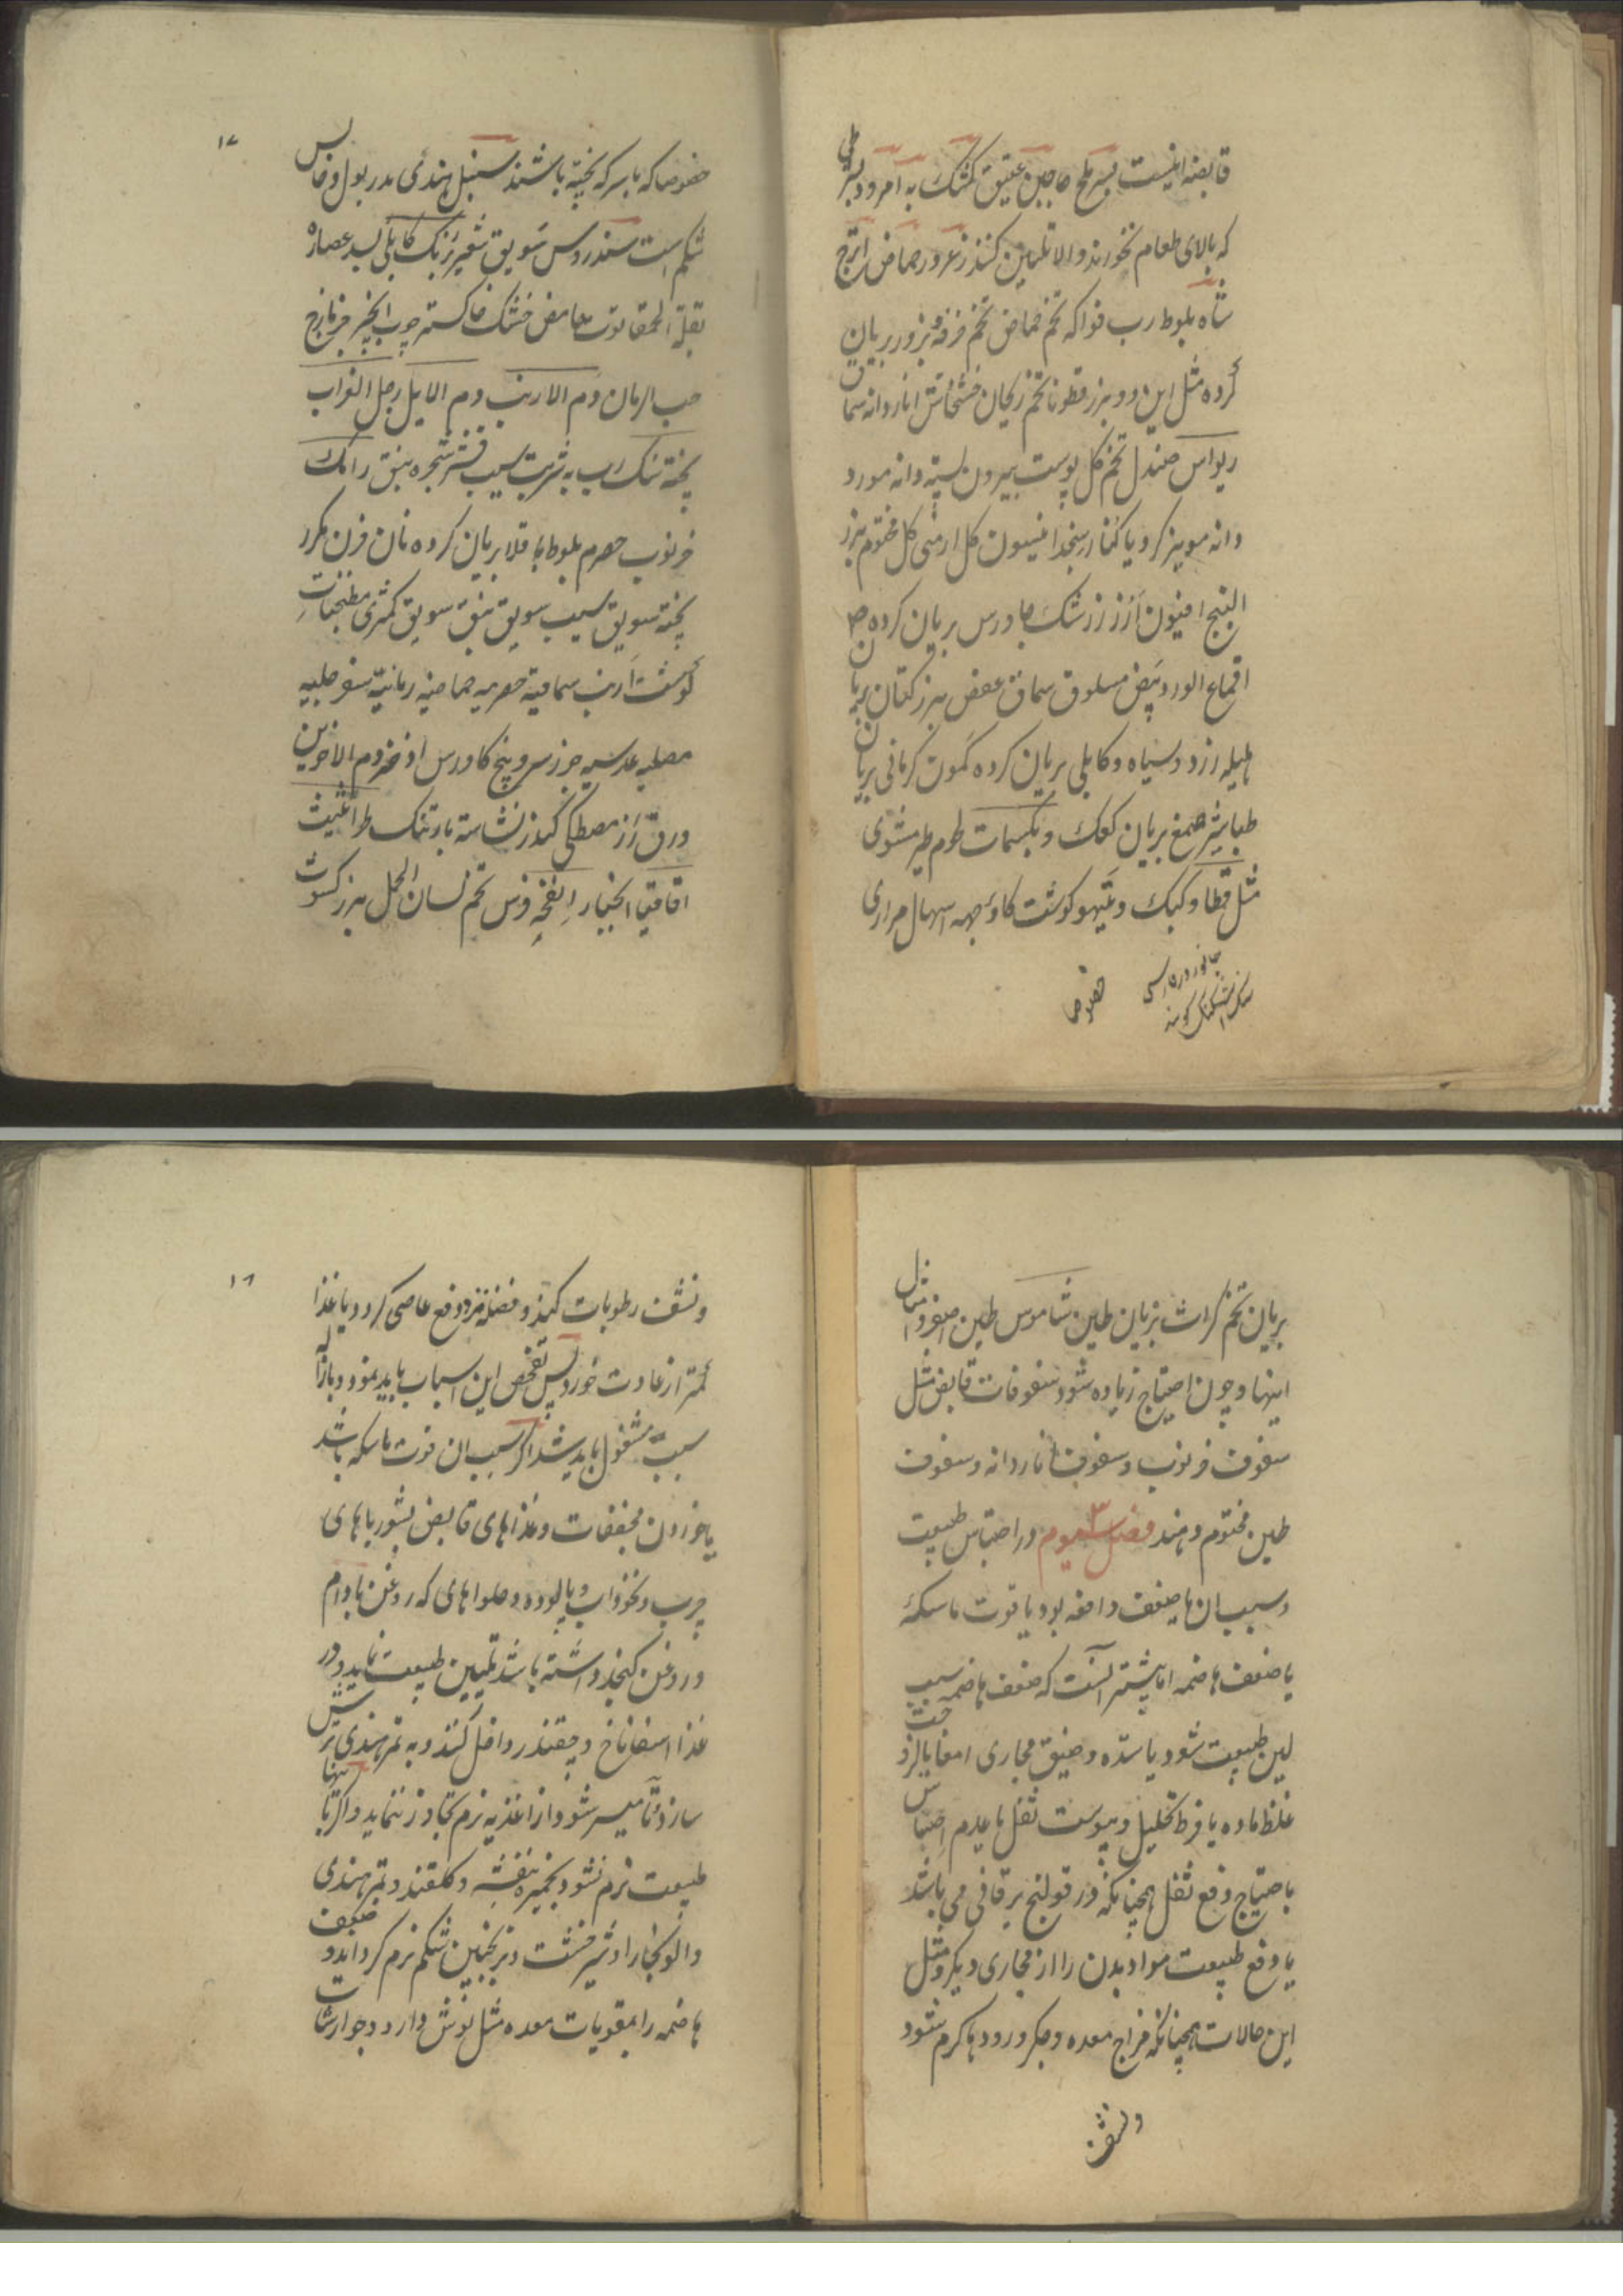 قابضه اینست بسر طلح جاجین عتیق کشک به امرود بشرطی
که بالای طعام نخورند والا تلیین کنند زعرور حماض اترج
شاه بلوط رب فواکه تخم حماض تخم خرفه و بزور بریان
کرده مثل این دو بزر قطونا تخم ریحان خشخاش اناردانه سماق
ریواس صندل تخم گل پوست بیرون پسته دانه مورد
دانه مویز کرویا کنار سنجد انیسون گل ارمنی گل مختوم بزر
البنج افیون ارز زرشک جاورس بریان کرده
اقماع الورد بیض مسلوق سماق عفص بزر کتان بریان
هلیله زرد و سیاه و کابلی بریان کرده کمون کرمانی بریان
طباشیر صمغ بریان کعک و بکسمات لحوم طیر مشوی
مثل قطا و کبک و تیهو کوشت کاو بجهه اسهال مراری
خصوصا
۱۷
خصوصا که با سرکه پخته باشند سنبل هندی مدر بول و حابس
شکم است سندروس سویق شعیر برنک کابلی بسد عصاره
بقلة الحمقا توت حامض خشک خاکستر چوب انجیر جزمازج
حب الرمان دم الارنب دم الایل رجل الغراب
پخته نمک رب به شربت سیب قشر شجره نبق رامک
خرنوب حصرم بلوط باقلا بریان کرده نان فرن مکرر
پخته سویق سیب سویق نبق سویق کمثری مطنجنات
کوشت ارنب سماقیه حصرمیه حماضیه رمانیه سفرجلیه
مصلیه عدسیه جوز سرو پنج کاورس اذخر دم الاخوین
ورق ارز مصطکی کندر نشاسته بارتنک طراثیث
اقاقیا انجبار انفحه فرس تخم لسان الحمل بزر کشوت
بریان تخم کراث بریان طین شاموس طین اصفر و امثال
اینها و چون احتیاج زیاده شود سفوفات قابض مثل
سفوف خرنوب و سفوف اناردانه و سفوف
طین مختوم دهند فصل سیوم ۳ در احتباس طبیعت
و سبب ان یا ضعف دافعه بود یا قوت ماسکهٔ
یا ضعف هاضمه اما بیشتر آنست که ضعف هاضمه سبب
لین طبیعت شود یا سده و ضیق مجاری امعا یا لزوجت
غلظ ماده یا فرط تحلیل و یبوست ثفل یا عدم احساس
باحتیاج دفع ثفل همچنانکه در قولنج یرقانی می باشد
یا دفع طبیعت مواد بدن را از مجاری دیکر و مثل
این حالات همچنانکه مزاج معده و جکر و رودها کرم شود
ونشف
۱۸
ونشف رطوبات کنند و فضله نزد دفع عاصی کردد یا غذا
کمتر از عادت خورد پس تفحص این اسباب باید نمود و بازاله
سبب مشغول باید شد اکر سبب ان قوت ماسکه باشد
یا خوردن مجففات و غذاهای قابض بشورباهای
چرب و نخوداب و پالوده و حلواهای که روغن بادام
و روغن کنجد داشته باشد تلیین طبیعت نماید و در
غذا اسفاناخ و چقندر داخل کنند و به تمر هندی ترش
سازد و تا میسر شود از اغذیه نرم تجاوز ننماید و اکر باینها
طبیعت نرم نشود بخمیره بنفشه و کلقند و تمر هندی
والو بخارا و شیر خشت و ترنجبین شکم نرم کرداند و ضعف
هاضمه را بمقویات معده مثل نوش دارو و جوارشات